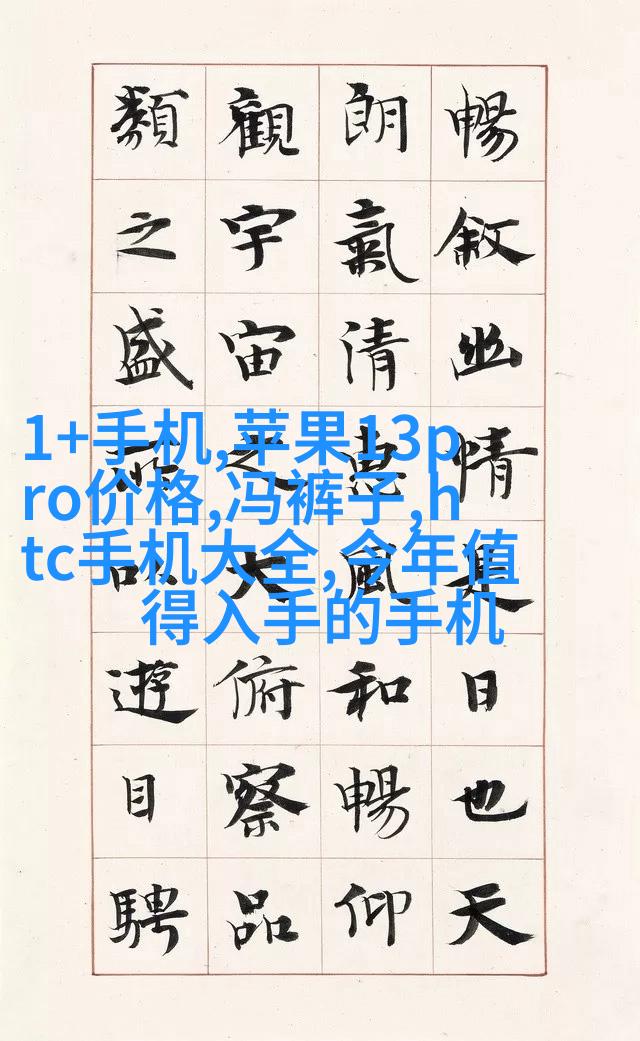 暢敘幽情是日也天
朗氣清惠風和暢仰
觀宇宙之大俯察品
類之盛所以遊目騁
1+手机,苹果13p
ro价格,冯裤子,h
tc手机大全,今年值
得入手的手机